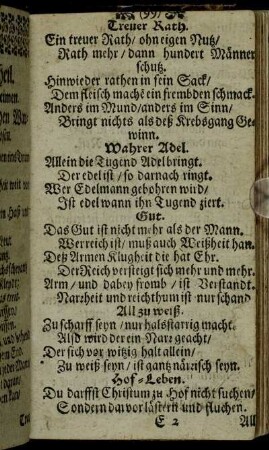 (99)
Treuer Rath.
Ein treuer Rath / ohn eigen Nutz /
Rath mehr / dann hundert Männer
schutz.
Hinwieder rathen in sein Sack /
Dem fleisch macht ein frembden schmack.
Anders im Mund / anders im Sinn /
Bringt nichts als deß Krebsgang Ge-
winn.
Wahrer Adel.
Allein die Tugend Adel bringt.
Der edel ist / so darnach ringt.
Wer Edelmann gebohren wird /
Ist edel wann ihn Tugend ziert.
Gut.
Das Gut ist nicht mehr als der Mann.
Wer reich ist / muß auch Weißheit han.
Deß Armen Klugheit die hat Ehr.
Der Reich versteigt sich mehr und mehr.
Arm / und dabey fromb / ist Verstandt.
Narzheit und reichthum ist nur schand
All zu weiß.
Zu scharff seyn / nur halsstarrig macht.
Alsd wird der ein Narr geacht /
Der sich vor witzig halt allein /
Zu weiß seyn / ist gantz närrisch seyn.
Hof-Leben.
Du darffst Christum zu Hof nicht suchen /
Sondern davor lästern und fluchen.
E 2 All